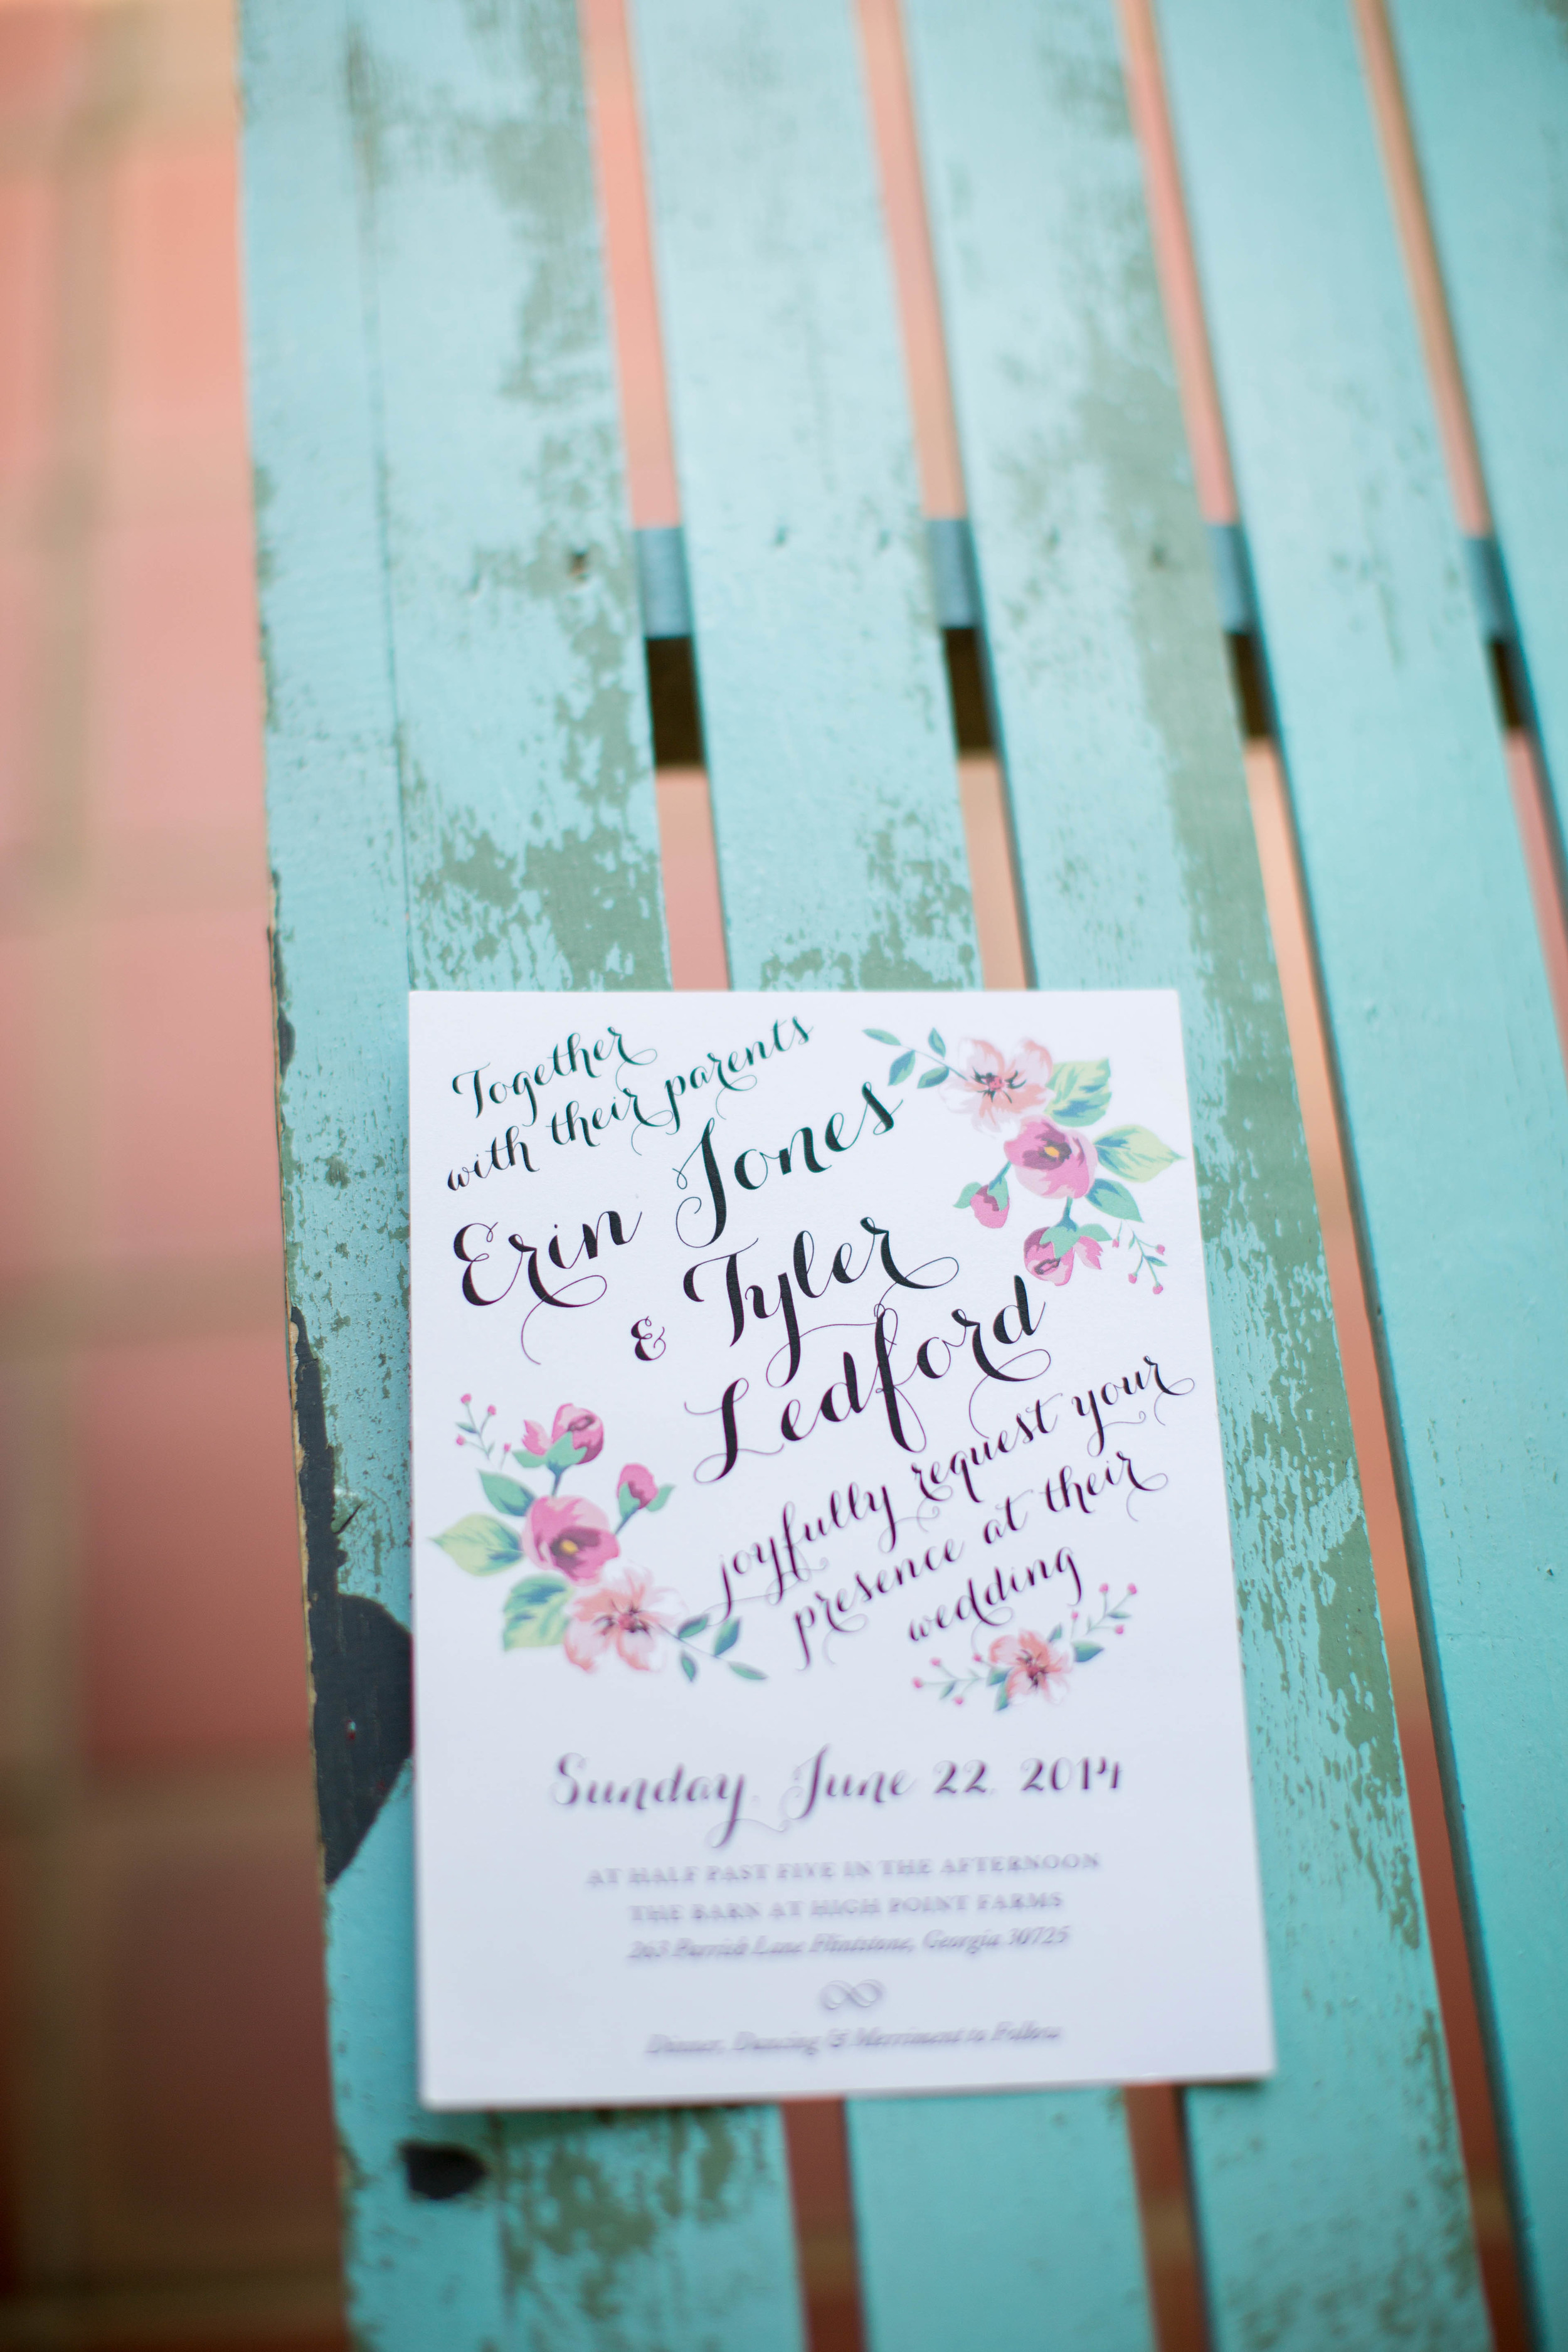 Together
with their parents
Erin Jones
& Tyler
Ledford
joyfully request your
presence at their
wedding
Sunday, June 22, 2014
AT HALF PAST FIVE IN THE AFTERNOON
THE BARN AT HIGH POINT FARMS
263 Parrish Lane Flintstone, Georgia 30725
Dinner, Dancing & Merriment to Follow